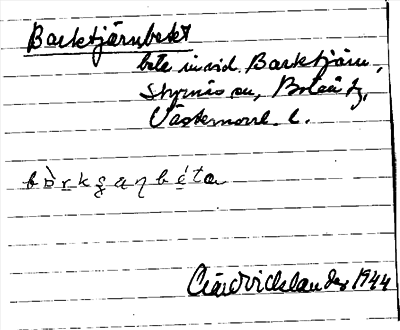 Barktjärnbetet
bete invid Barktjärn,
Styrnäs sn, Boteå tg,
Västernorrl. l.
bårkçaɳbéta
1944